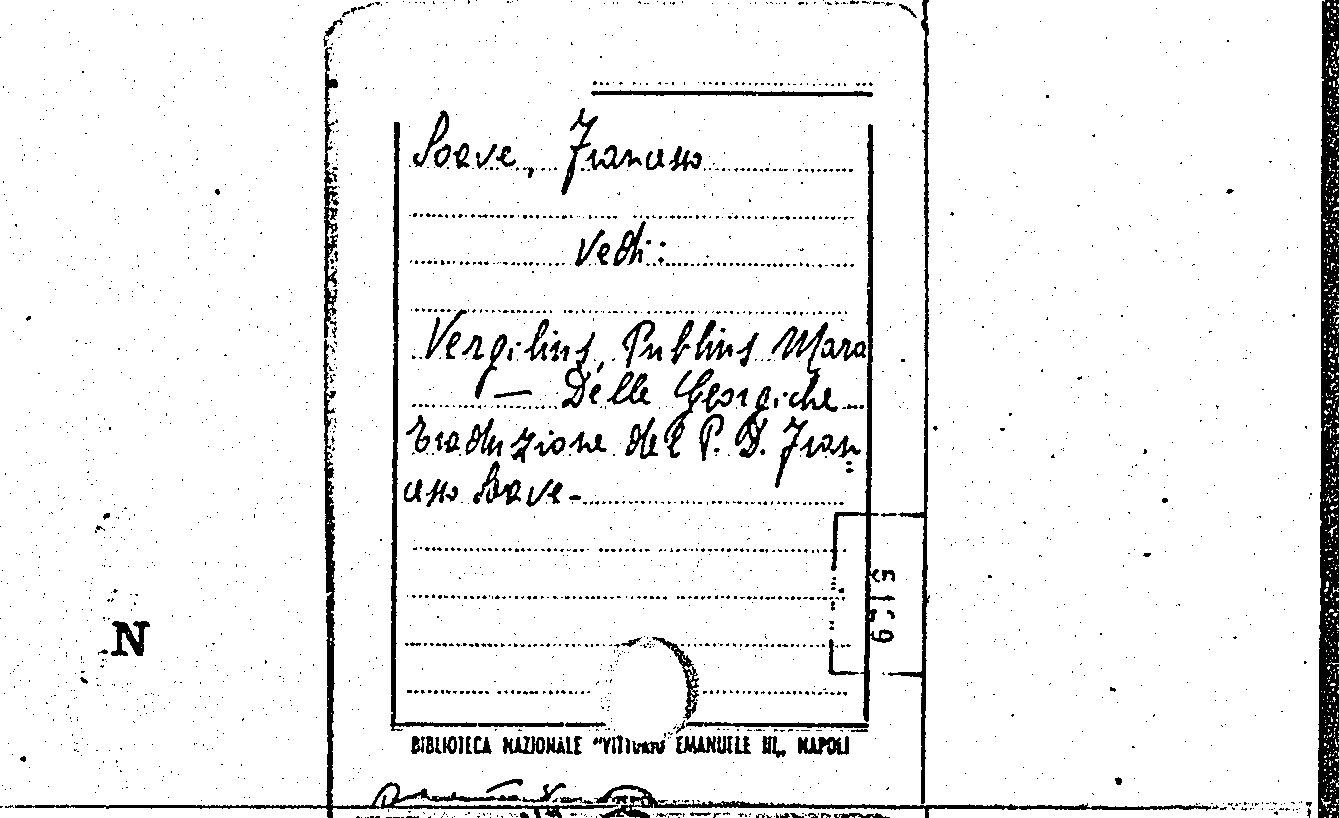 Soave, Francesco
Vedi:
Vergilius, Publius Maro
— Delle Georgiche
traduzione del P. D. Fran=
cesco Soave-
N
BIBLIOTECA NAZIONALE "VITTORIO EMANUELE III„ NAPOLI